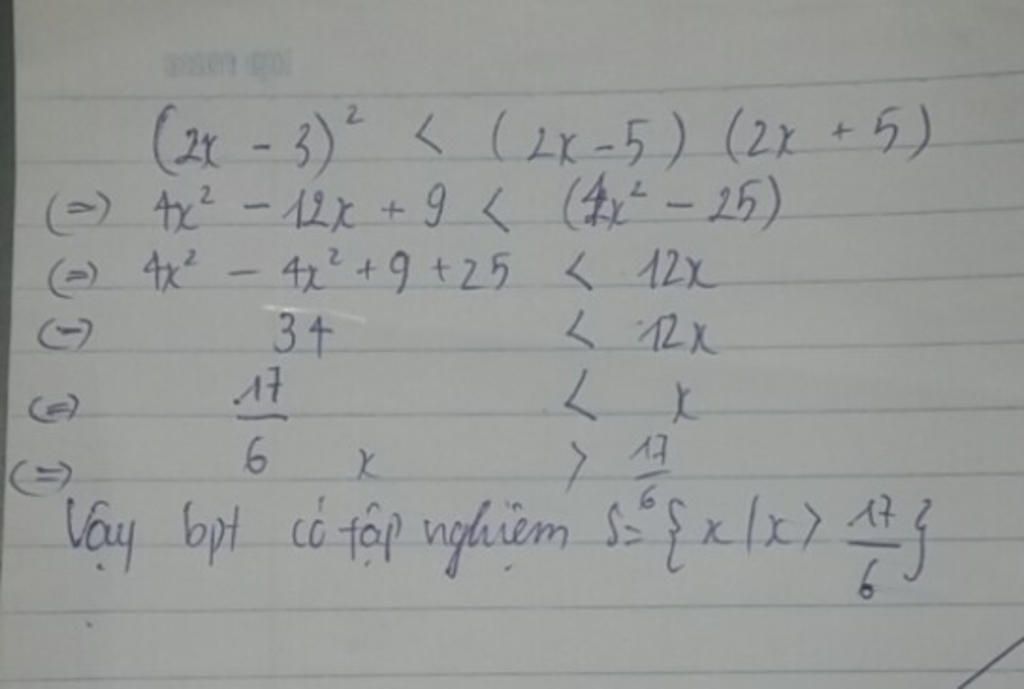 (2x - 3)² < (2x - 5) (2x + 5)
(=) 4x² - 12x + 9 < (4x² - 25)
(=) 4x² - 4x² + 9 + 25 < 12x
(-) 34 < 12x
(=) 17/6 < x
(=) x > 17/6
Vậy bpt có tập nghiệm S = {x | x > 17/6}